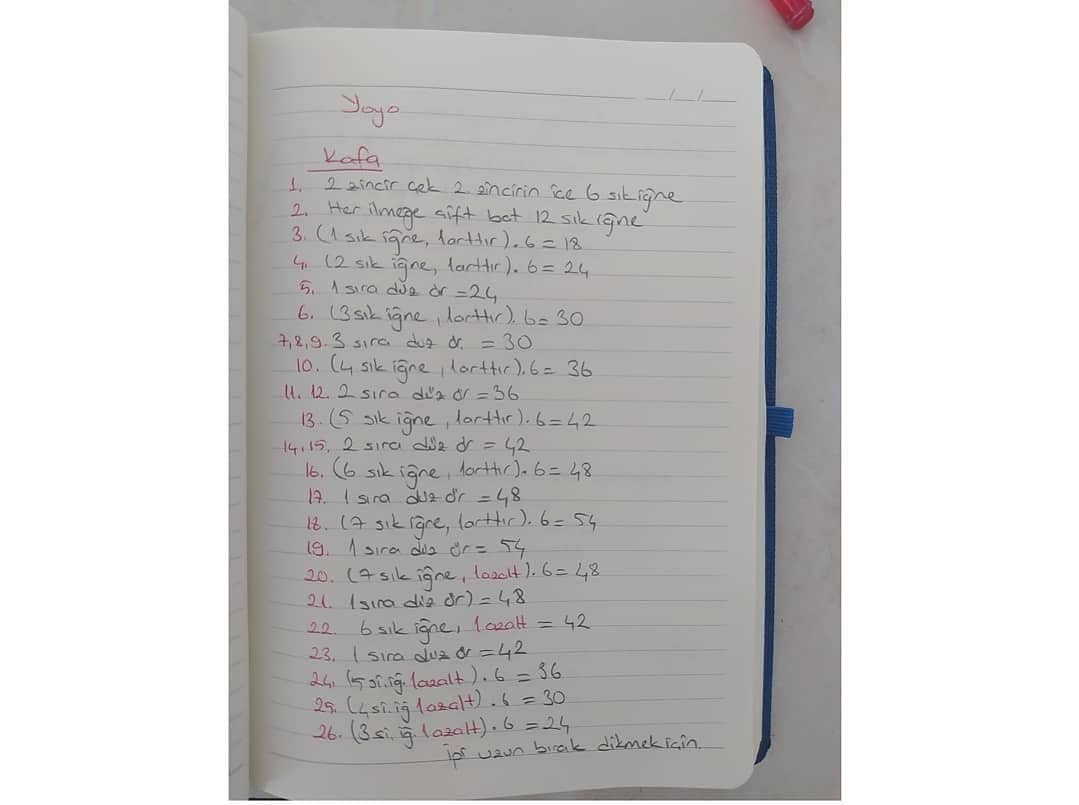 Yoyo
Kafa
1. 2 zincir çek 2. zincirin içe 6 sık iğne
2. Her ilmeğe çift bat 12 sık iğne
3. (1 sık iğne, 1arttır). 6 = 18
4. (2 sık iğne, 1arttır). 6 = 24
5. 1 sıra düz ör = 24
6. (3 sık iğne, 1arttır). 6 = 30
7,8,9. 3 sıra düz ör. = 30
10. (4 sık iğne, 1arttır). 6 = 36
11. 12. 2 sıra düz ör = 36
13. (5 sık iğne, 1arttır). 6 = 42
14,15. 2 sıra düz ör = 42
16. (6 sık iğne, 1arttır). 6 = 48
17. 1 sıra düz ör = 48
18. (7 sık iğne, 1arttır). 6 = 54
19. 1 sıra düz ör = 54
20. (7 sık iğne, 1azalt). 6 = 48
21. 1 sıra düz ör) = 48
22. 6 sık iğne, 1azalt = 42
23. 1 sıra düz ör = 42
24. (5 si.iğ. 1azalt). 6 = 36
25. (4 si.iğ 1azalt). 6 = 30
26. (3 si.iğ. 1azalt). 6 = 24
ipi uzun bırak dikmek için.